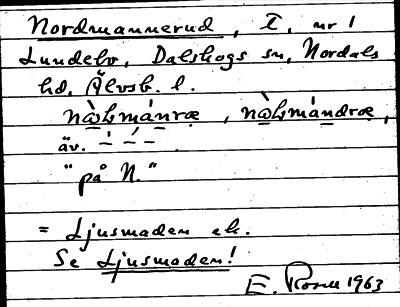 Nordmannerud, I. nr 1
Lundebo, Dalskogs sn, Nordals
hd, Älvsb. l.
nòɷ̀ḷmánræ, nòɷ̀ḷmándræ,
äv. – – –
"på N."
= Ljusmaden ek.
Se Ljusmaden!
E. Rosell 1963